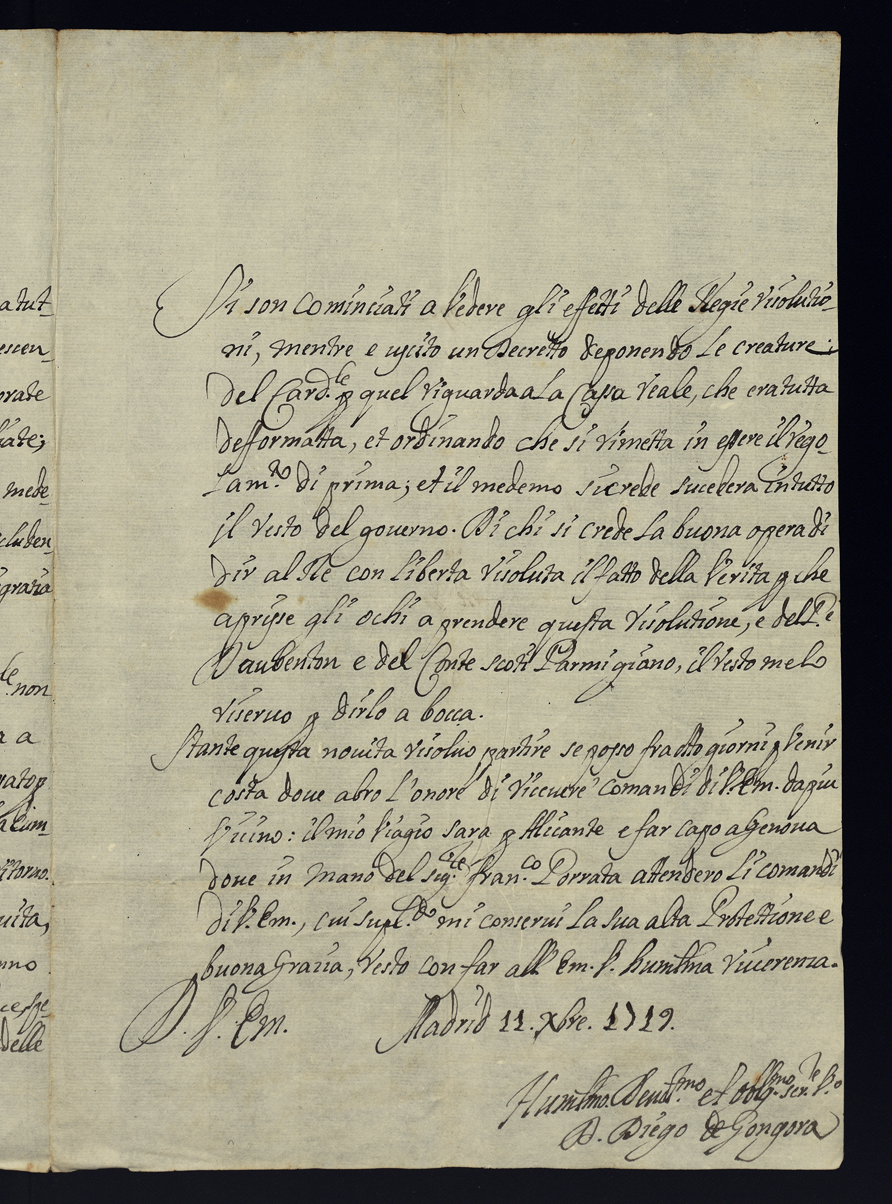 atut-
escen-
orate
iate;
mede-
cluden-
gratia
non
a a
rato p
alcum-
ritorno.
uita,
nno
cesse-
delle
Si son cominciati a Vedere gli effetti delle Regie risolutio-
ni, mentre e uscito un Decretto deponendo le creature
del Card.le p quel riguarda a La Casa reale, che era tutta
defformatta, et ordinando che si rimetta in essere il rego-
Lam.to di prima; et il medemo si crede sucedera in tutto
il resto del governo. Di chi si crede La buona opera di
dir al Re con liberta risoluta il fatto della Verita p che
aprisse gli ochi a prendere questa risolutione, e del P.e
Daubenton e del Conte scoti Parmigiano, il resto me lo
riseruo p dirlo a bocca.
Stante questa nouita risoluo partire se posso fra otto giorni p Venir
costa doue abro l'onore di riceuere comandi di V. Em. da piu
Vicino: il mio Viagio sara p Alicante e far capo a Genoua
doue in mano del sig.re Fran.co Porrata attendero li comandi
di V. Em., cui supl.do mi conserui La sua alta Protettione e
buona Gratia, resto con far all' Em. V. humilma riuerenza.
D. V. Em. Madrid 11. Xbre. 1719.
Humilmo. Deuot.mo et oblig.mo ser.re V.o
D. Diego de Gongora